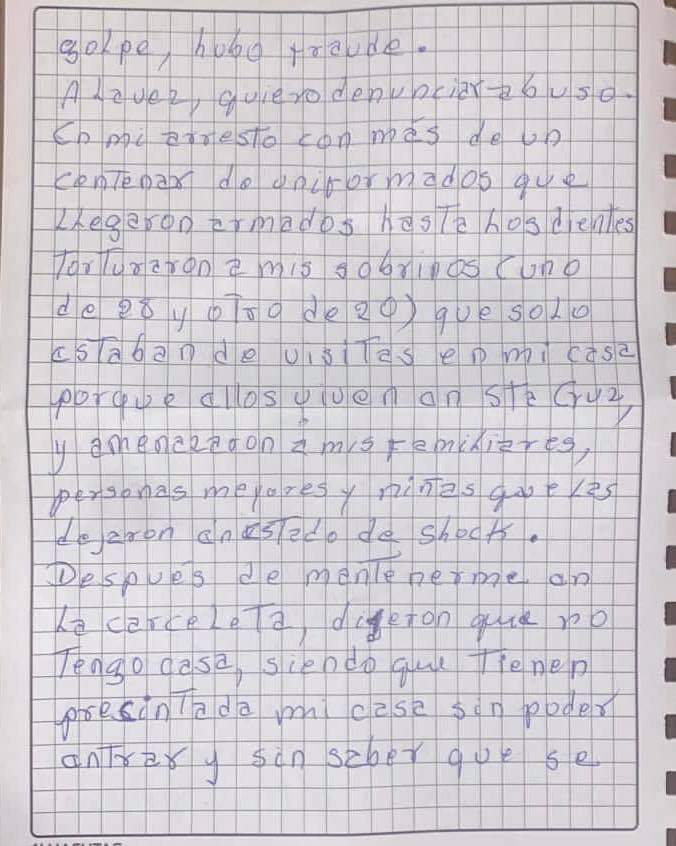 golpe, hubo fraude.
A la vez, quiero denunciar abuso.
En mi arresto con más de un
centenar de uniformados que
llegaron armados hasta los dientes
torturaron a mis sobrinos (uno
de 28 y otro de 20) que solo
estaban de visitas en mi casa
porque ellos viven en Sta Cruz,
y amenazaron a mis familiares,
personas mayores y niñas que las
dejaron en estado de shock.
Después de mantenerme en
la carceleta, dijeron que no
tengo casa, siendo que tienen
presintada mi casa sin poder
entrar y sin saber que se